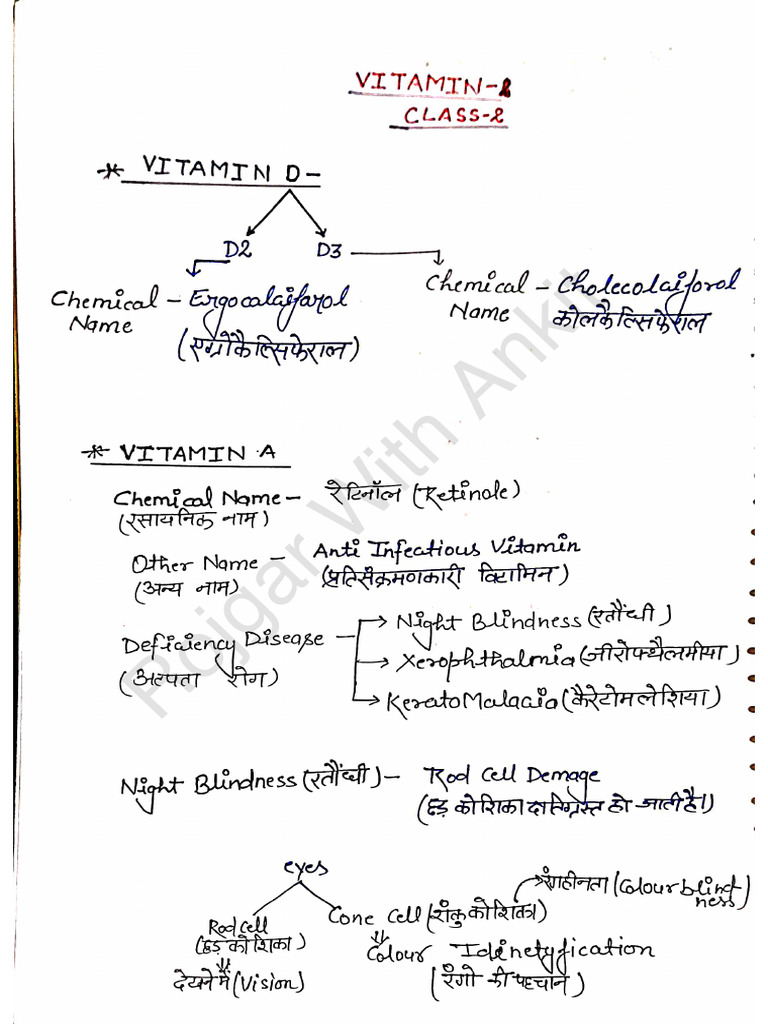 VITAMIN-2
CLASS-2
* VITAMIN D-
D2 D3
Chemical Name - Ergocalaifarol
(एर्गोकैल्सिफेराल)
Chemical Name - Cholecolaiforol
कोलकैल्सिफेराल
* VITAMIN A
Chemical Name - रेटिनॉल (Retinole)
(रसायनिक नाम)
Other Name - Anti Infectious Vitamin
(अन्य नाम) (प्रतिसंक्रमणकारी विटामिन)
Deficiency Disease
(अल्पता रोग)
Night Blindness (रतौंधी)
Xerophthalmia (जीरोफ्थैलमीया)
KeratoMalacia (कैरेटोमलेशिया)
Night Blindness (रतौंधी) - Rod Cell Demage
(छड़ कोशिका क्षतिग्रस्त हो जाती है।)
eyes
Rod Cell
(छड़ कोशिका)
देखने में (Vision)
Cone Cell (शंकु कोशिका)
रंगहीनता (Colour blindness)
Colour Idinetyfication
(रंगो की पहचान)
Rojgar With Ankit